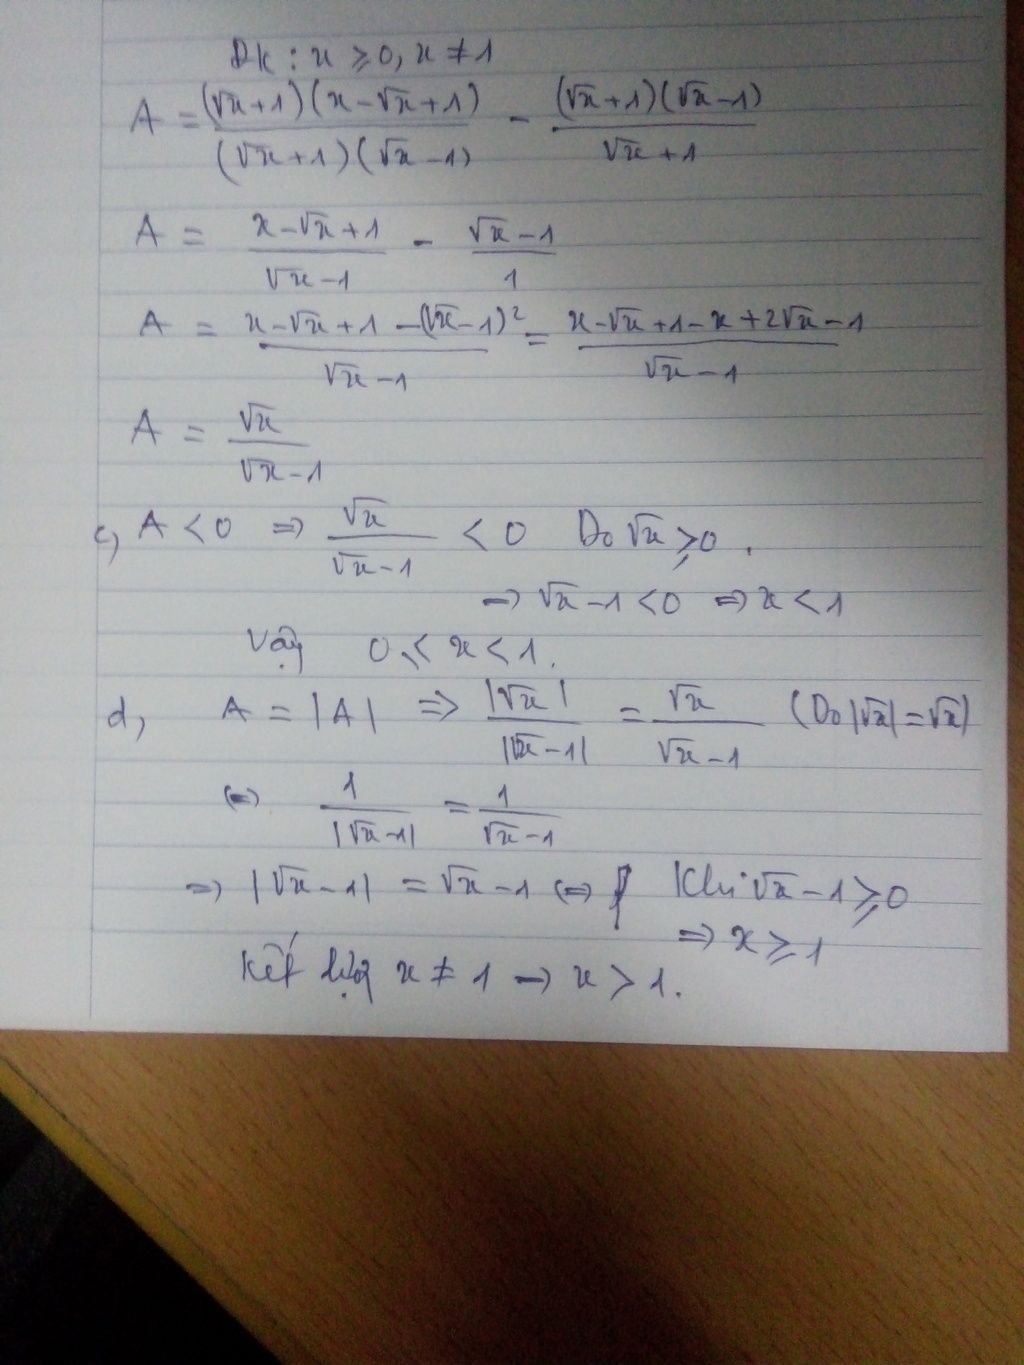 ĐK : x ≥ 0, x ≠ 1
A = (√x+1)(x-√x+1) / (√x+1)(√x-1) - (√x+1)(√x-1) / √x+1
A = x-√x+1 / √x-1 - √x-1 / 1
A = x-√x+1-(√x-1)² / √x-1 = x-√x+1-x+2√x-1 / √x-1
A = √x / √x-1
c, A < 0 => √x / √x-1 < 0 Do √x ≥ 0 .
=> √x-1 < 0 => x < 1
Vậy 0 ≤ x < 1.
d, A = |A| => |√x| / |√x-1| = √x / √x-1 (Do |√x| = √x)
<=> 1 / |√x-1| = 1 / √x-1
=> |√x-1| = √x-1 <=> Khi √x-1 ≥ 0
=> x ≥ 1
Kết hợp x ≠ 1 -> x > 1.